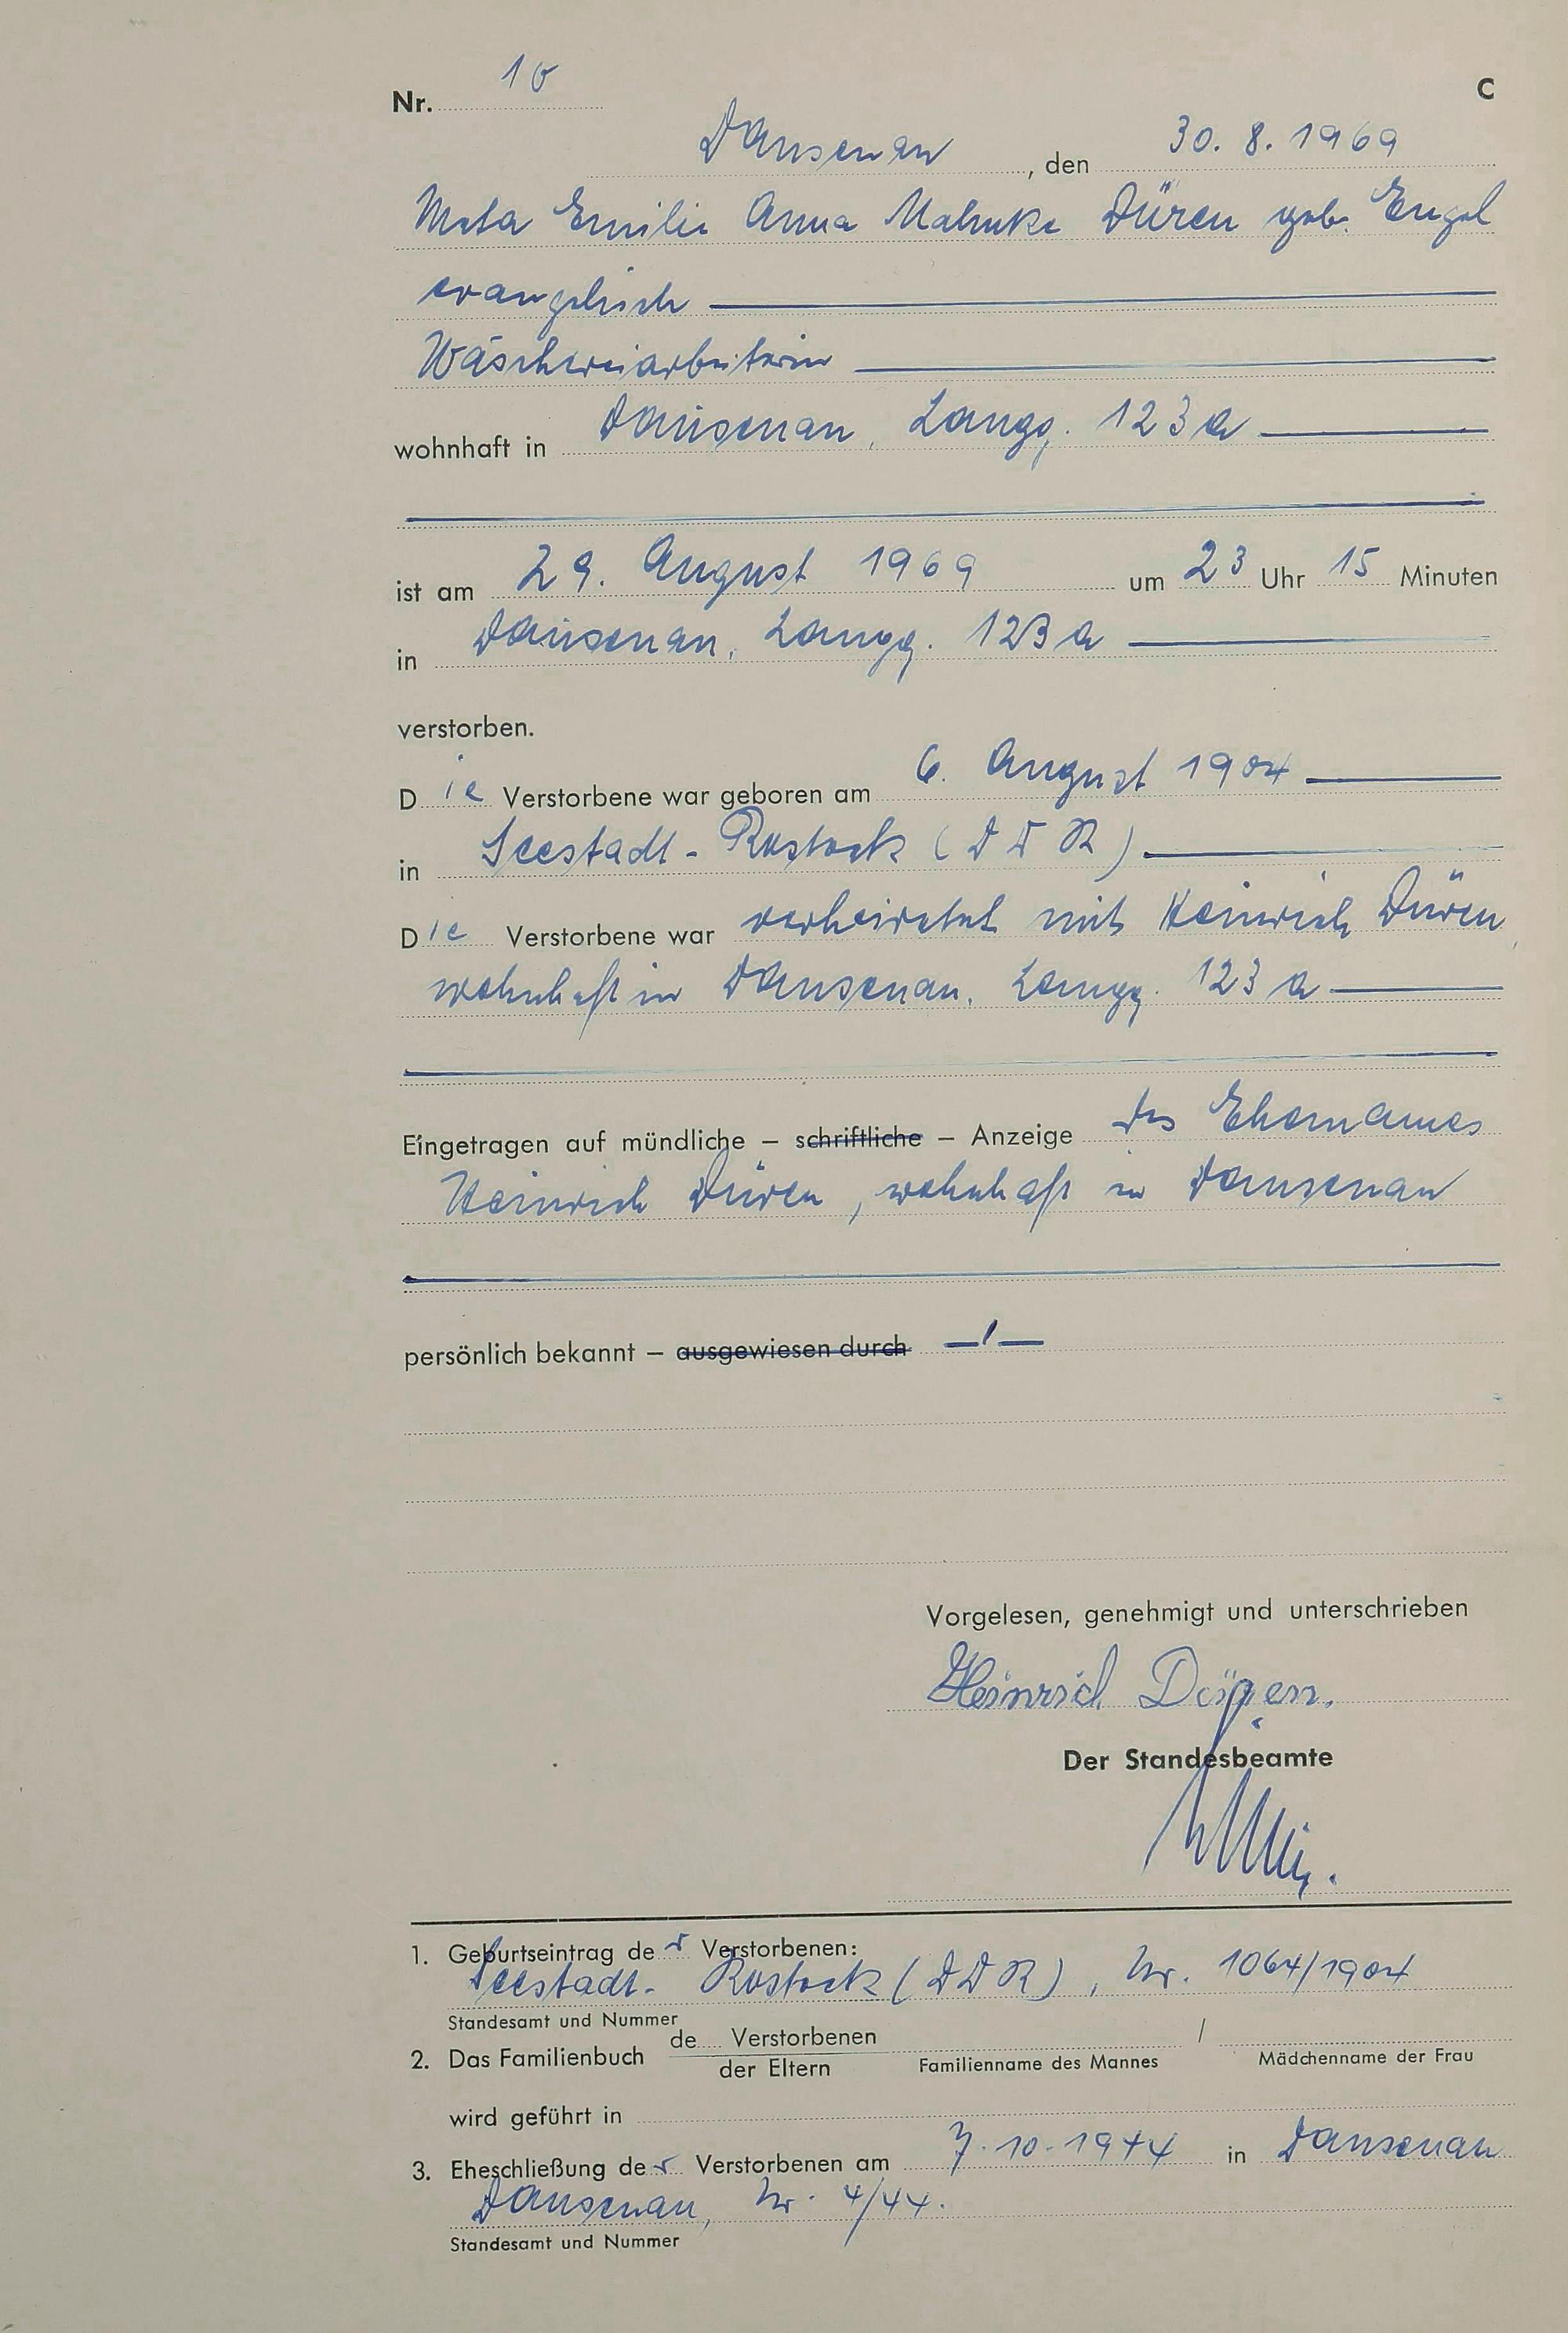 Nr. 10
C
Dausenau, den 30. 8. 1969
Meta Emilie Anna Mahnke Düren geb. Engel
evangelisch
Wäschereiarbeiterin
wohnhaft in Dausenau, Langg. 123 a
ist am 29. August 1969 um 23 Uhr 15 Minuten
in Dausenau, Langg. 123 a
verstorben.
Die Verstorbene war geboren am 6. August 1904
in Seestadt-Rostock (DDR)
Die Verstorbene war verheiratet mit Heinrich Düren,
wohnhaft in Dausenau, Langg. 123 a
Eingetragen auf mündliche – schriftliche – Anzeige des Ehemannes
Heinrich Düren, wohnhaft in Dausenau
persönlich bekannt – ausgewiesen durch –/–
Vorgelesen, genehmigt und unterschrieben
Heinrich Düren.
Der Standesbeamte
1. Geburtseintrag der Verstorbenen:
Seestadt-Rostock (DDR), Nr. 1064/1904
Standesamt und Nummer
2. Das Familienbuch de.... Verstorbenen / 
der Eltern Familienname des Mannes Mädchenname der Frau
wird geführt in
3. Eheschließung der Verstorbenen am 7.10.1944 in Dausenau
Dausenau, Nr. 4/44.
Standesamt und Nummer